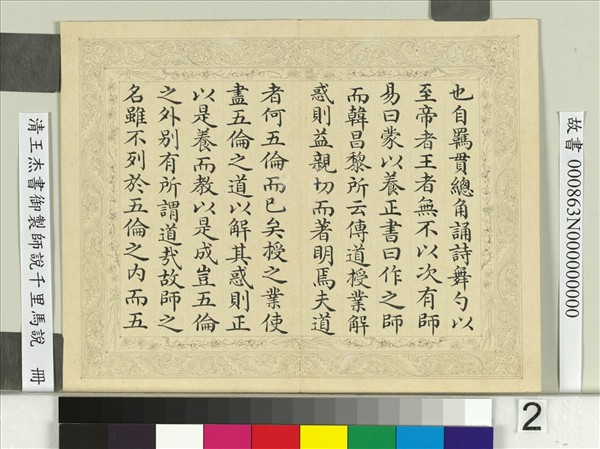 也自羈貫總角誦詩舞勺以
至帝者王者無不以次有師
易曰蒙以養正書曰作之師
而韓昌黎所云傳道授業解
惑則益親切而著明焉夫道
者何五倫而已矣授之業使
盡五倫之道以解其惑則正
以是養而教以是成豈五倫
之外別有所謂道哉故師之
名雖不列於五倫之内而五
故書 000863N000000000
清王杰書御製師說千里馬說 冊
2